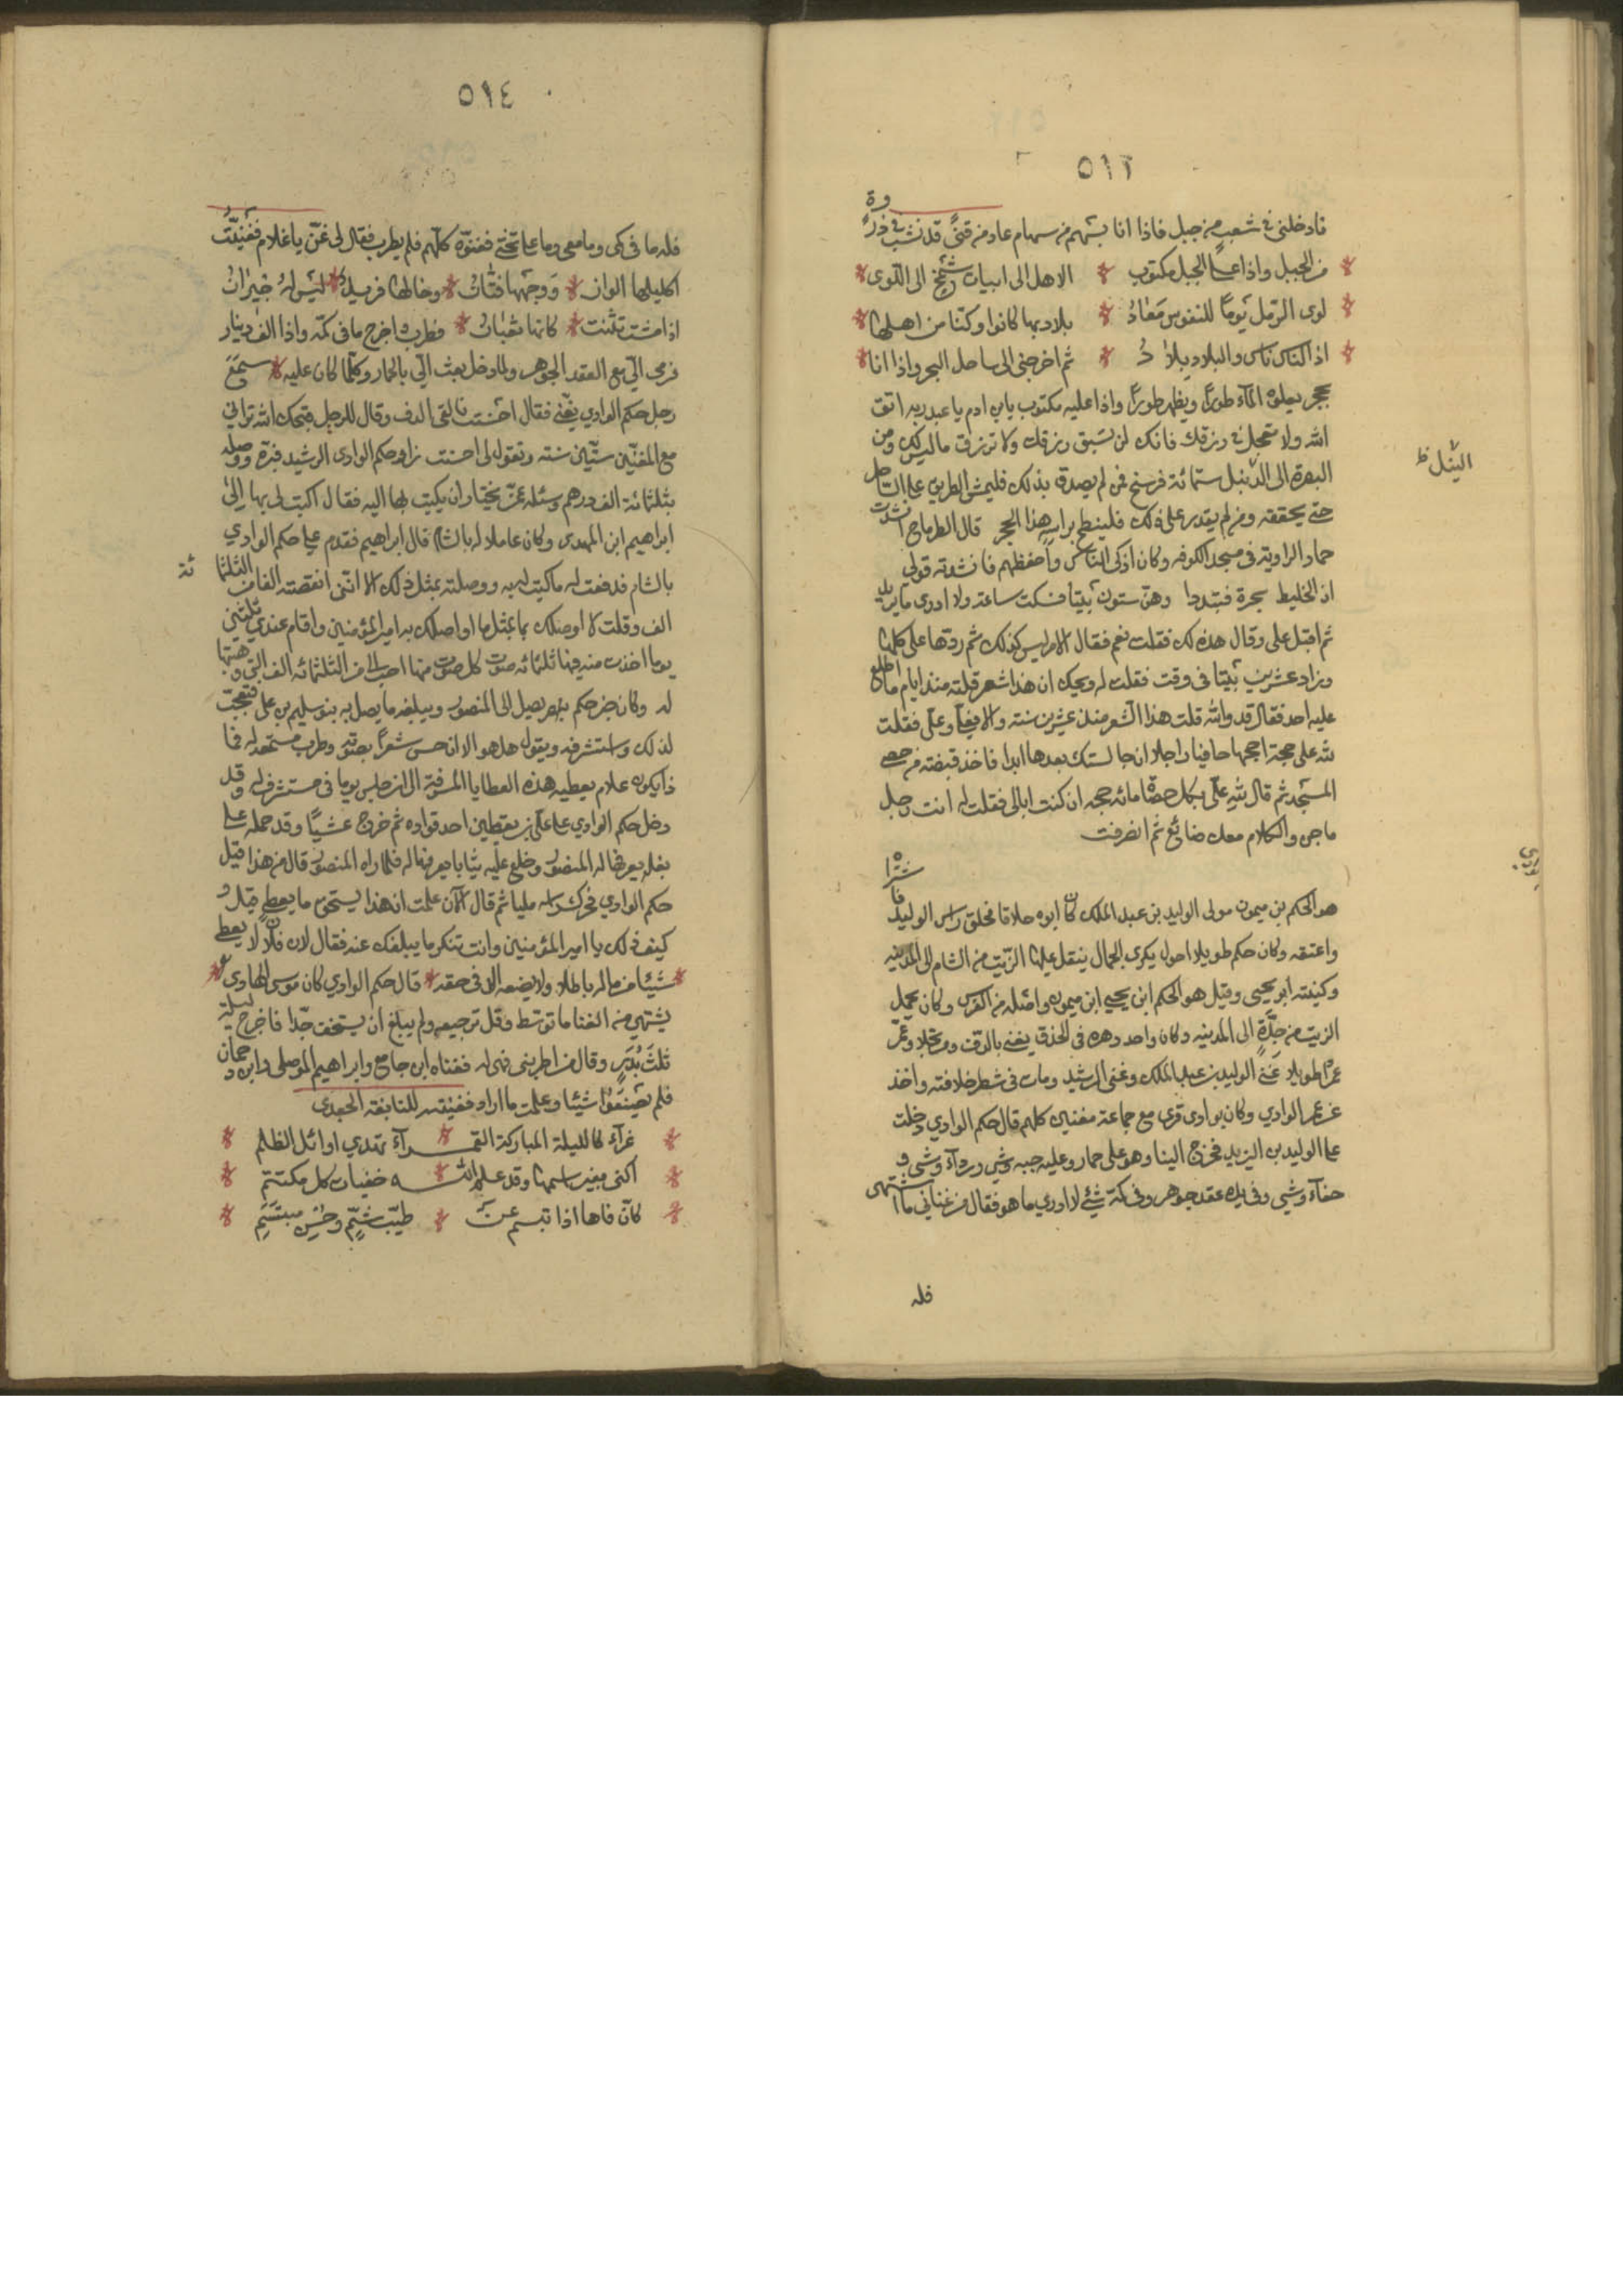 ٥١٣
فادخلنى فى شعب من جبل فاذا انا بسهم من سهام عاد من قنىً قد نشب فى ذروة
من الجبل واذا على الجبل مكتوب * الاهل الى ابيات شمخ الى اللوى *
لوى الرمل يوماً للنفوس مَعَادُ * بلاد بها كانوا وكنا من اهلها *
اذ الناس ناس والبلاد بلادُ * ثم اخرجنى الى ساحل البحر واذا انا *
بحجر يعلوه المآء طوراً ويظهر طوراً واذا عليه مكتوب يابن ادم يا عبد ربه اتق
الله ولا تعجل فى رزقك فانك لن تسبق رزقك ولا ترزق ما ليس لك ومن
البصرة الى الدّيبل ستمائة فرسخ فمن لم يصدق بذلك فليمش الطريق على الساحل
حتى يحققه ومن لم يقدر على ذلك فلينطح براسه هذا الحجر قال الطرماح انشدت
حماد الراوية فى مسجد الكوفه وكان اذكى الناس واحفظهم فانشدته قولى
اذ الخليط بسحرة فتبددا وهى ستون بيتا فسكت ساعة ولا ادرى ما يريد
ثم اقبل على وقال هذه لك فقلت نعم فقال الامر ليس كذلك ثم ردّها على كلها
وزاد عشرين بيتا فى وقت فقلت له ويحك ان هذا شعر قلته منذ ايام ما اطلع
عليه احد فقال قد والله قلت هذا الشعر منذ عشرين سنة والا فعلى وعلى فقلت
لله على حجة احجها حافيا راجلا ان جالستك بعدها ابدا فاخذ قبضة من حصى
المسجد ثم قال لله على بكل حصاة مائه حجه ان كنت ابالى فقلت له انت رجل
ماجن والكلام معك ضائع ثم انصرفت
هو الحكم بن ميمون مولى الوليد بن عبد الملك كان ابوه حلاقا فحلق راس الوليد فاشتراه
واعتقه وكان حكم طويلا احول يكرى الجمال ينقل عليها الزيت من الشام الى المدينه
وكنيته ابو يحيى وقيل هو الحكم ابن يحيى ابن ميمون واصله من الفرس وكان يحمل
الزيت من جدّة الى المدينه وكان واحد دهره فى الحذق يغنى بالدف ومرتجلا وعمّر
عمراً طويلا غنى الوليد بن عبد الملك وغنى الرشيد ومات فى شطر خلافته واخذ
عن عمر الوادي وكان بوادى قرى مع جماعة مغنين كلهم قال حكم الوادي دخلت
على الوليد بن اليزيد فخرج الينا وهو على حمار وعليه جبه وشى وردآء وشى و
خفآء وشي وفى يده عقد جوهر وفى كمّه شئ لا ادري ما هو فقال من غنانى ما اشتهى
فله
النّيل ظ
٥١٤
فله ما فى كمى وما معى وما على وما تحتى فغنوّه كلّهم فلم يطرب فقال لى غنّ يا غلام فغنيّت
اكليلها الوان * وَوجهها فتّانُ * وخالها فريدٌ * ليس له جيرانُ
اذا مشت تثنت * كانها ثعبانُ * فطرب واخرج ما فى كمّه واذا الف دينار
فرمى الىّ مع العقد الجوهر ولما دخل بعث الىّ بالحمار وكلّما كان عليه * سمع
رجل حكم الوادي يغنى فقال احسنت فالقى الدف وقال للرجل قبحك الله ترانى
مع المغنّين ستّين سنة وتقول لى احسنت زار حكم الوادى الرشيد فبرّه ووصله
بثلثمائة الف درهم وسئله عمّن يختار ان يكتب لها اليه فقال اكتب لى بها الى
ابراهيم ابن المهدى وكان عاملا له بالشام قال ابراهيم فقدم على حكم الوادي
بالشام فدفعت له ما كتب له به ووصلته بمثل ذلك الا انّنى انقصته الفا من الثلثمائة
الف وقلت لا اوصلك بمثل ما اوصلك به امير المؤمنين واقام عندي ثلثين
يوما اخذت منه فيها ثلثمائه صوت كل صوت منها احب الى من الثلثمائه الف التى وهبتها
له وكان خبر حكم يصل الى المنصور ويبلغه ما يصل به بنو سليم بن على فتعجب
لذلك واستشرفه ويقول هل هو الا ان حسن شعراً بصوته وطرب مستمعه له فما
ذا يكون علام يعطيه هذه العطايا المسرفة الى ان جلس يوما فى مستشرف له وقد
دخل حكم الوادي على على بن يقطين احد قواده ثم خرج عشيًّا وقد حمله على
بغله يعرفها له المنصور وخلع عليه ثيابا يعرفها له فلما راه المنصور قال من هذا قيل
حكم الوادي فحرك راسه مليا ثم قال الآن علمت ان هذا يستحق ما يعطى قيل و
كيف ذلك يا امير المؤمنين وانت تنكر ما يبلغك عنه فقال لان فلانا لا يعطى
شيئا من ماله باطلا ولا يضعه الا فى حقه * قال حكم الوادي كان موسى الهادى *
يشتهى من الغنا ما توسّط وقل ترجيعه ولم يبلغ ان يستخف جدّا فاخرج ليلة
ثلثَ بُدَرٍ وقال من اطربنى فهى له فغناه ابن جامع وابراهيم الموصلى وابن دحمان
فلم يصنعوا شيئا وعلمت ما اراد فغنيته للنابغة الجعدى
* غرآء كالليلة المباركة القمـ * ـرآء تهدي اوائل الظلم *
* اكنى بغير اسمها وقد علم اللـ * ـه خفيات كل مكتتم *
* كانّ فاها اذا تبسم عن * طيّب شمٍّ وحُسن مبتسَمِ *